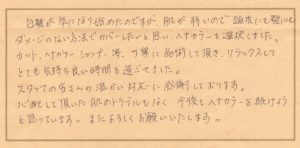 白髪が気になり始めたのですが、肌が弱いので頭皮にも髪にも
ダメージのない方法でカバーしたいと思い、ヘナカラーを選択しました。
カット、ヘナカラー、シャンプー等、丁寧に施術して頂き、リラックスして
とても気持ち良い時間を過ごせました。
スタッフの皆さんの温かい対応に感謝しております。
心配して頂いた肌のトラブルもなく、今後もヘナカラーを続けよう
と思っています。またよろしくお願いいたします。